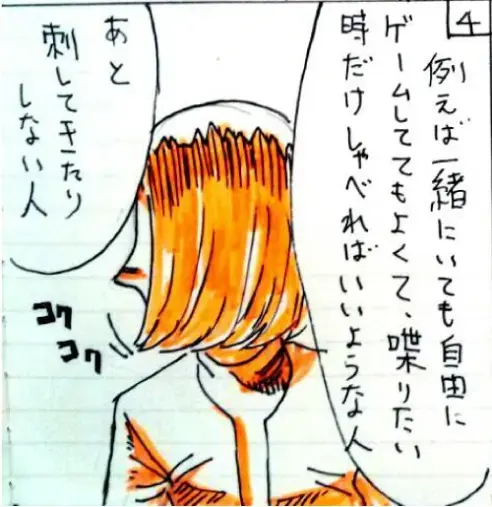 4
例えば一緒にいても自由に
ゲームしててもよくて、喋りたい
時だけしゃべればいいような人
あと
刺してきたり
しない人
コク
コク